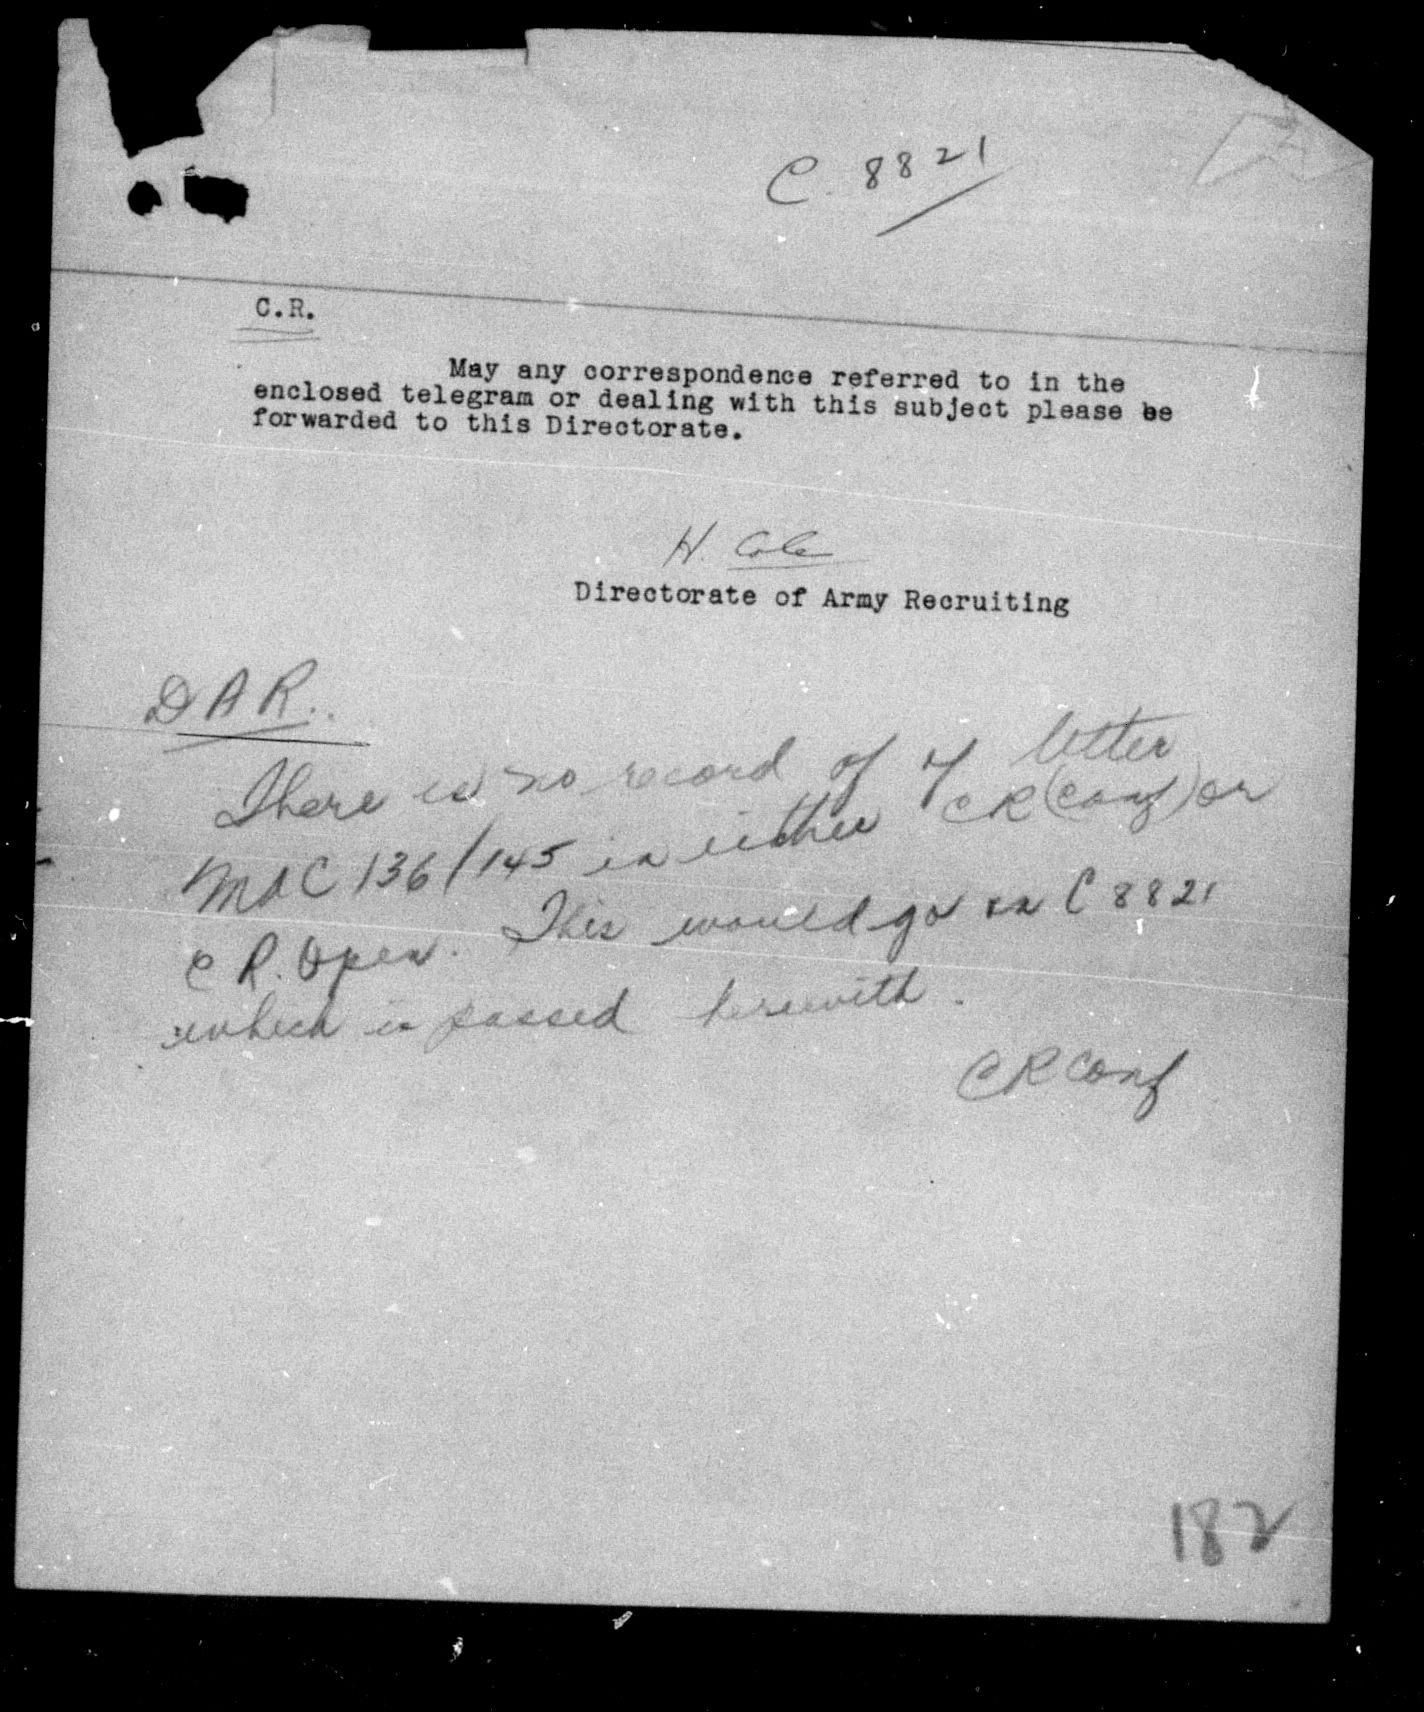 C. 8821
C.R.
May any correspondence referred to in the
enclosed telegram or dealing with this subject please be
forwarded to this Directorate.
H. Cole
Directorate of Army Recruiting
DAR.
There is no record of letter
MAC 136/145 in either CR (Conf) or
C R. Open. This would go on C 8821
which is passed herewith.
CR Conf
182